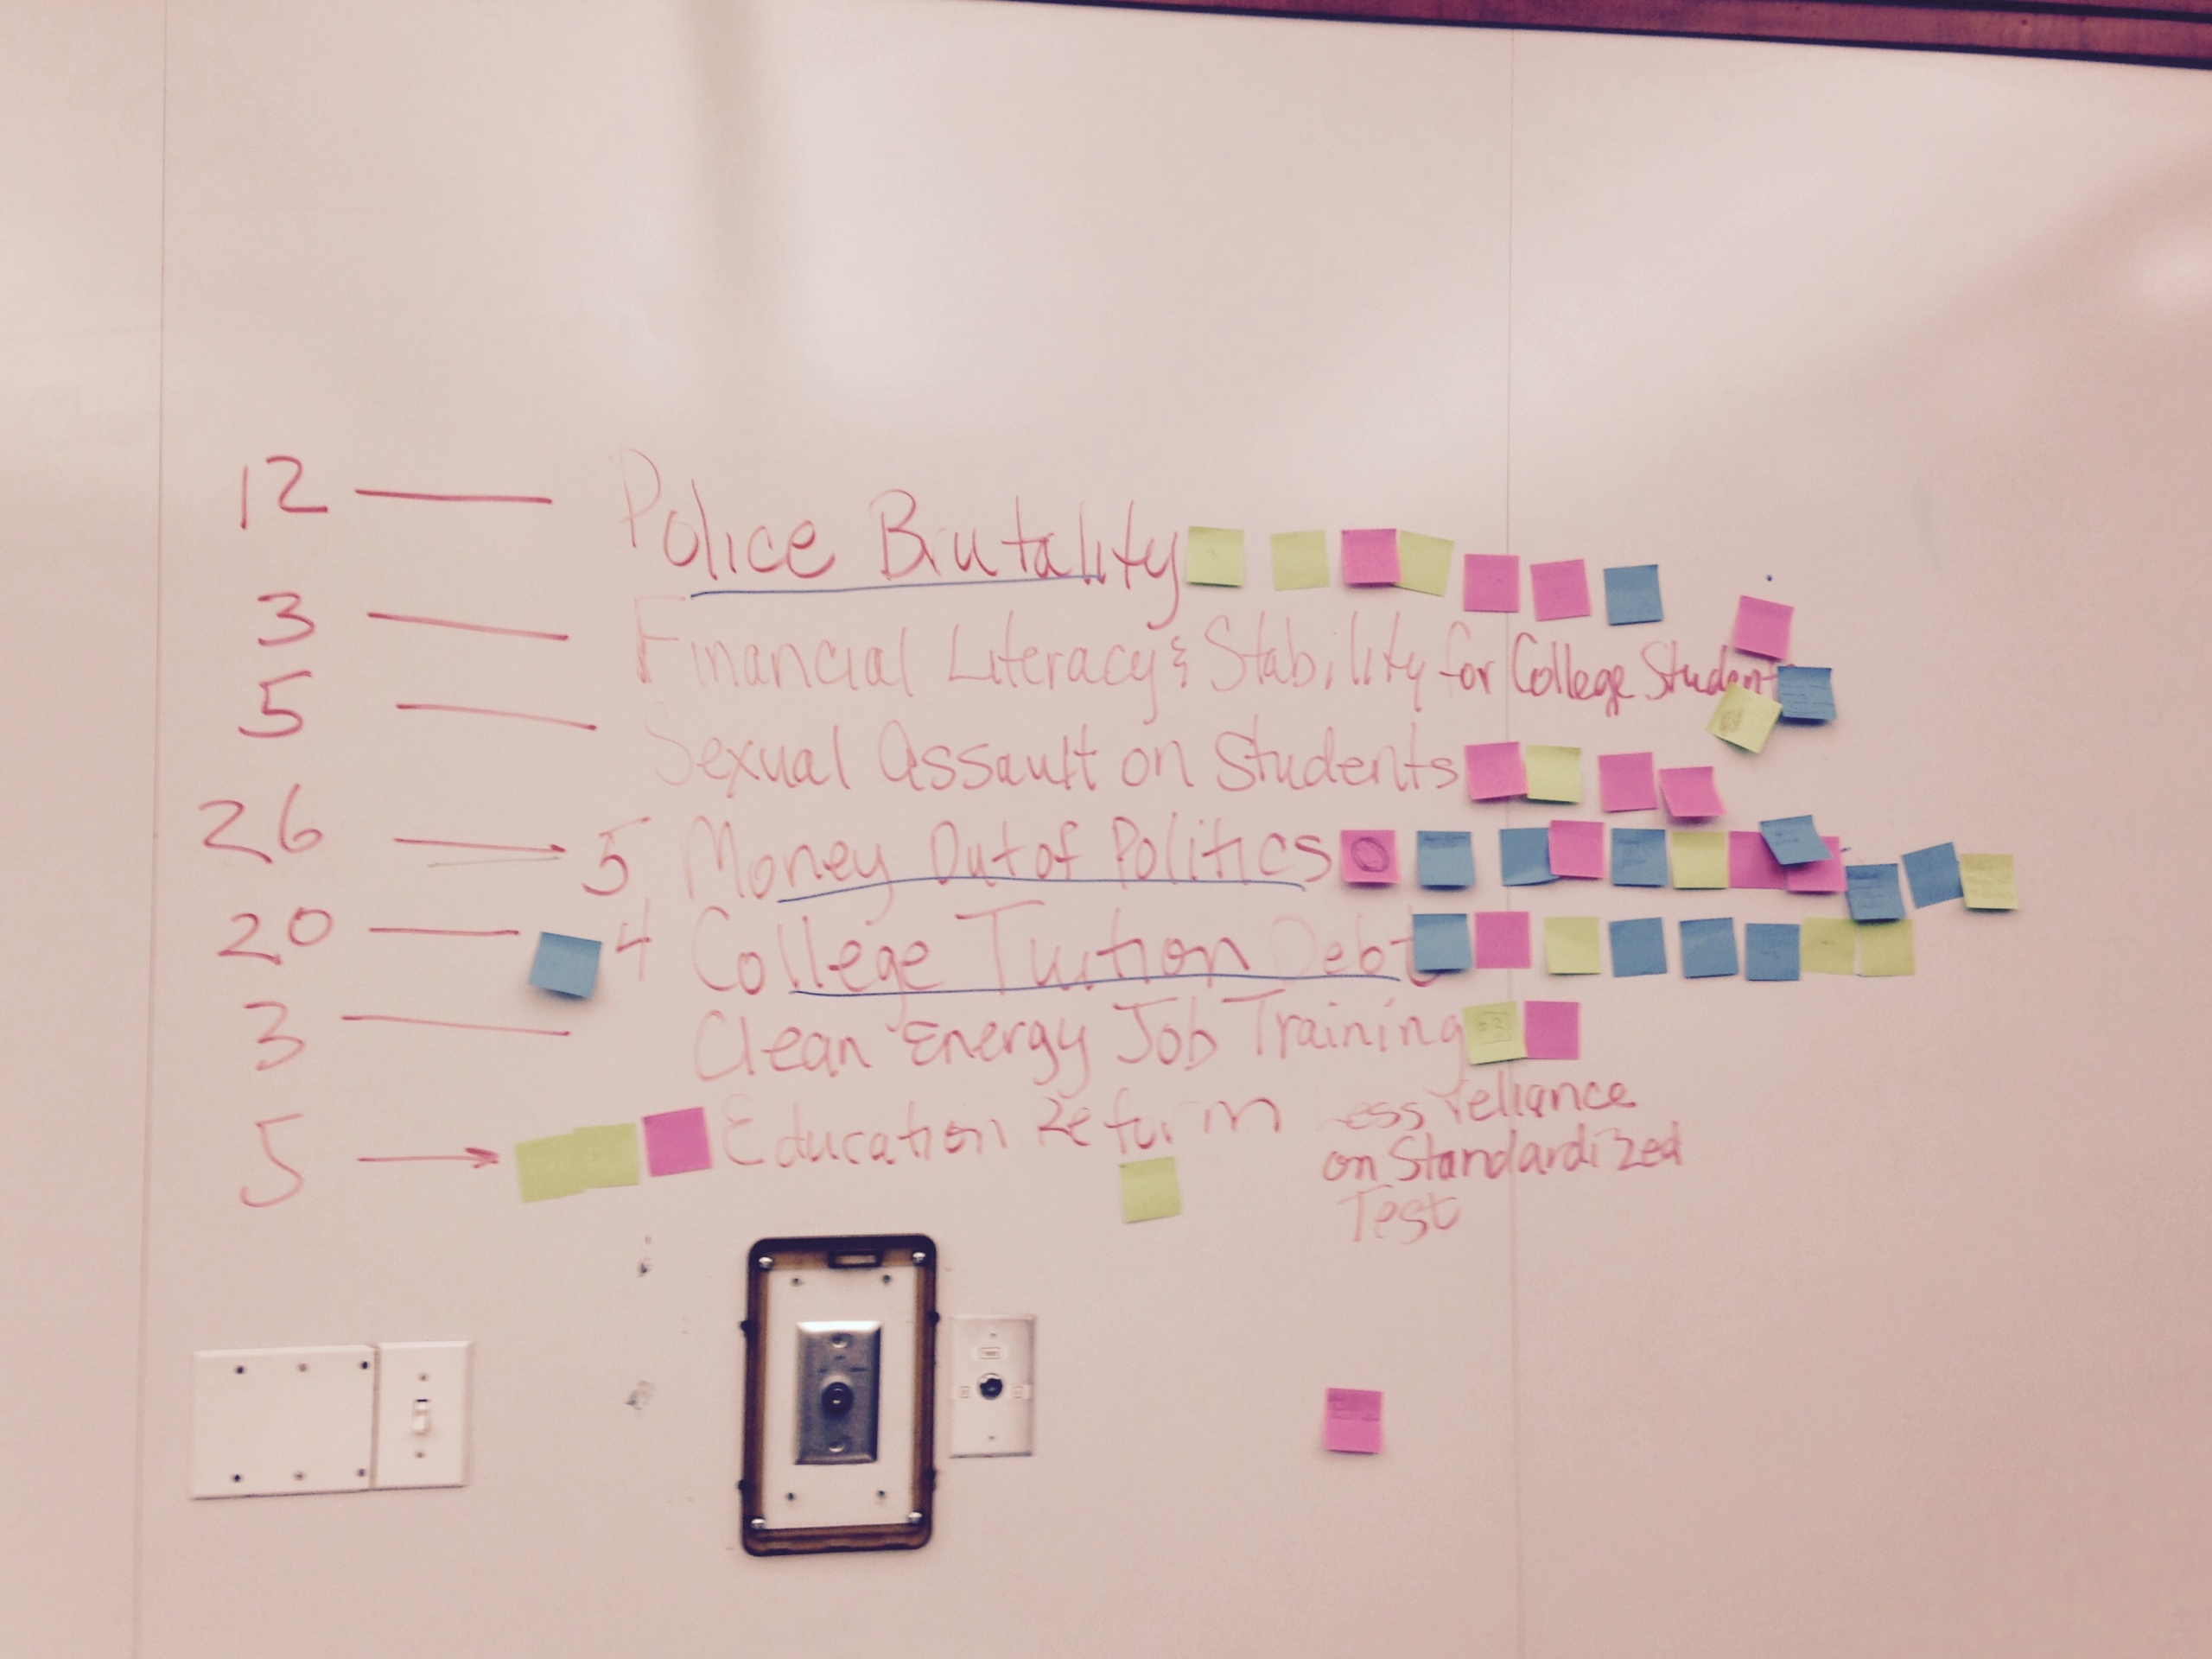 12 — Police Brutality
3 — Financial Literacy & Stability for College Student
5 — Sexual Assault on Students
26 → 5 Money Out of Politics
20 — 4 College Tuition Debt
3 — Clean Energy Job Training
5 → Education Reform Less reliance
on Standardized
Test